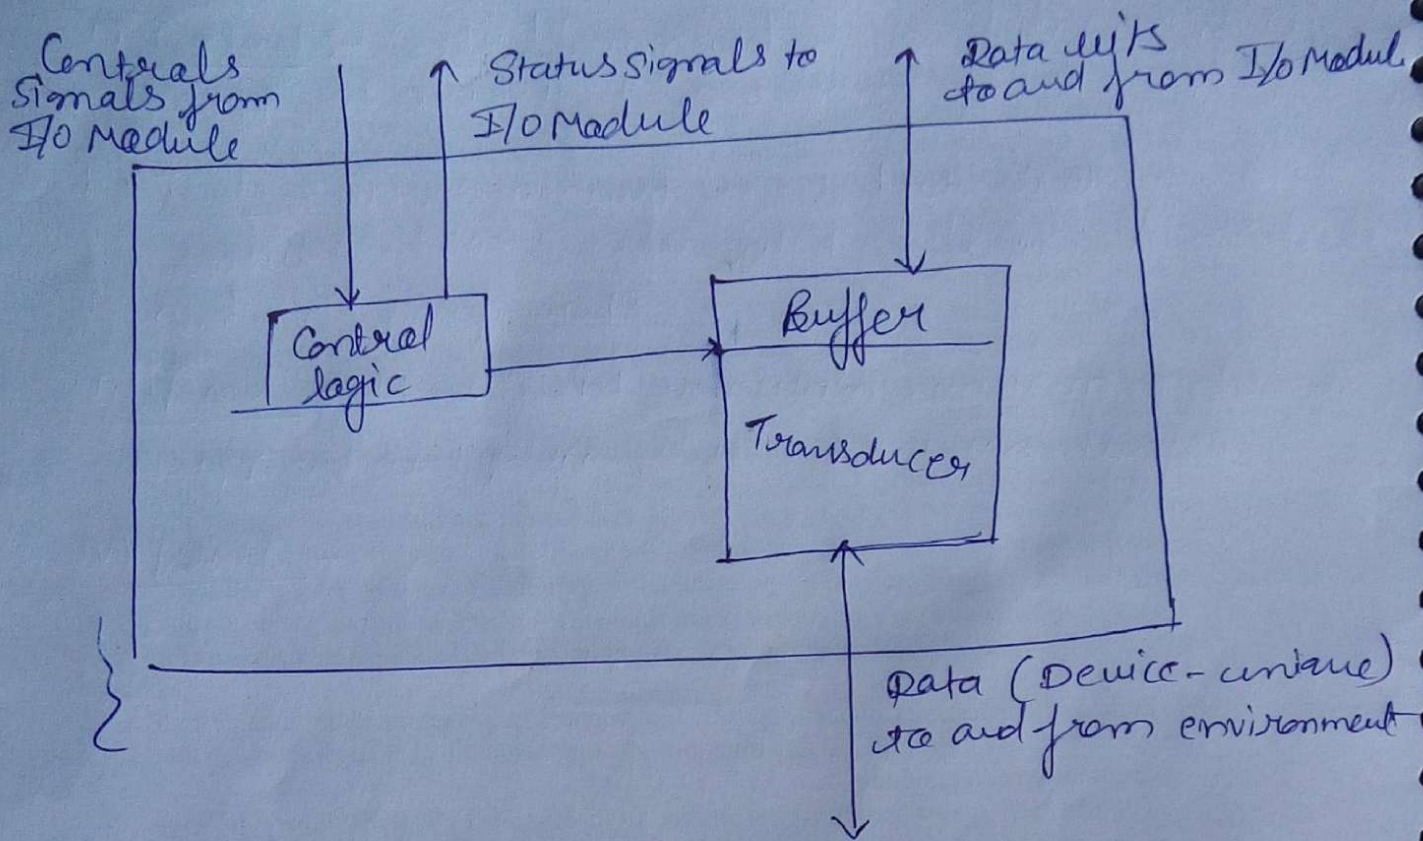 Controls
Signals from
I/O Module
Status Signals to
I/O Module
Data bits
to and from I/O Modul
Control
logic
Buffer
Transducer
Data (Device-unique)
to and from environment